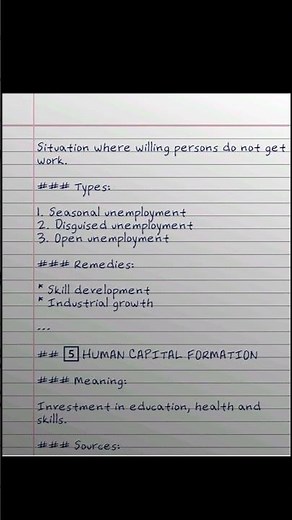 Situation where willing persons do not get
work.
### Types:
1. Seasonal unemployment
2. Disguised unemployment
3. Open unemployment
### Remedies:
* Skill development
* Industrial growth
...
## 5 HUMAN CAPITAL FORMATION
### Meaning:
Investment in education, health and
skills.
### Sources: